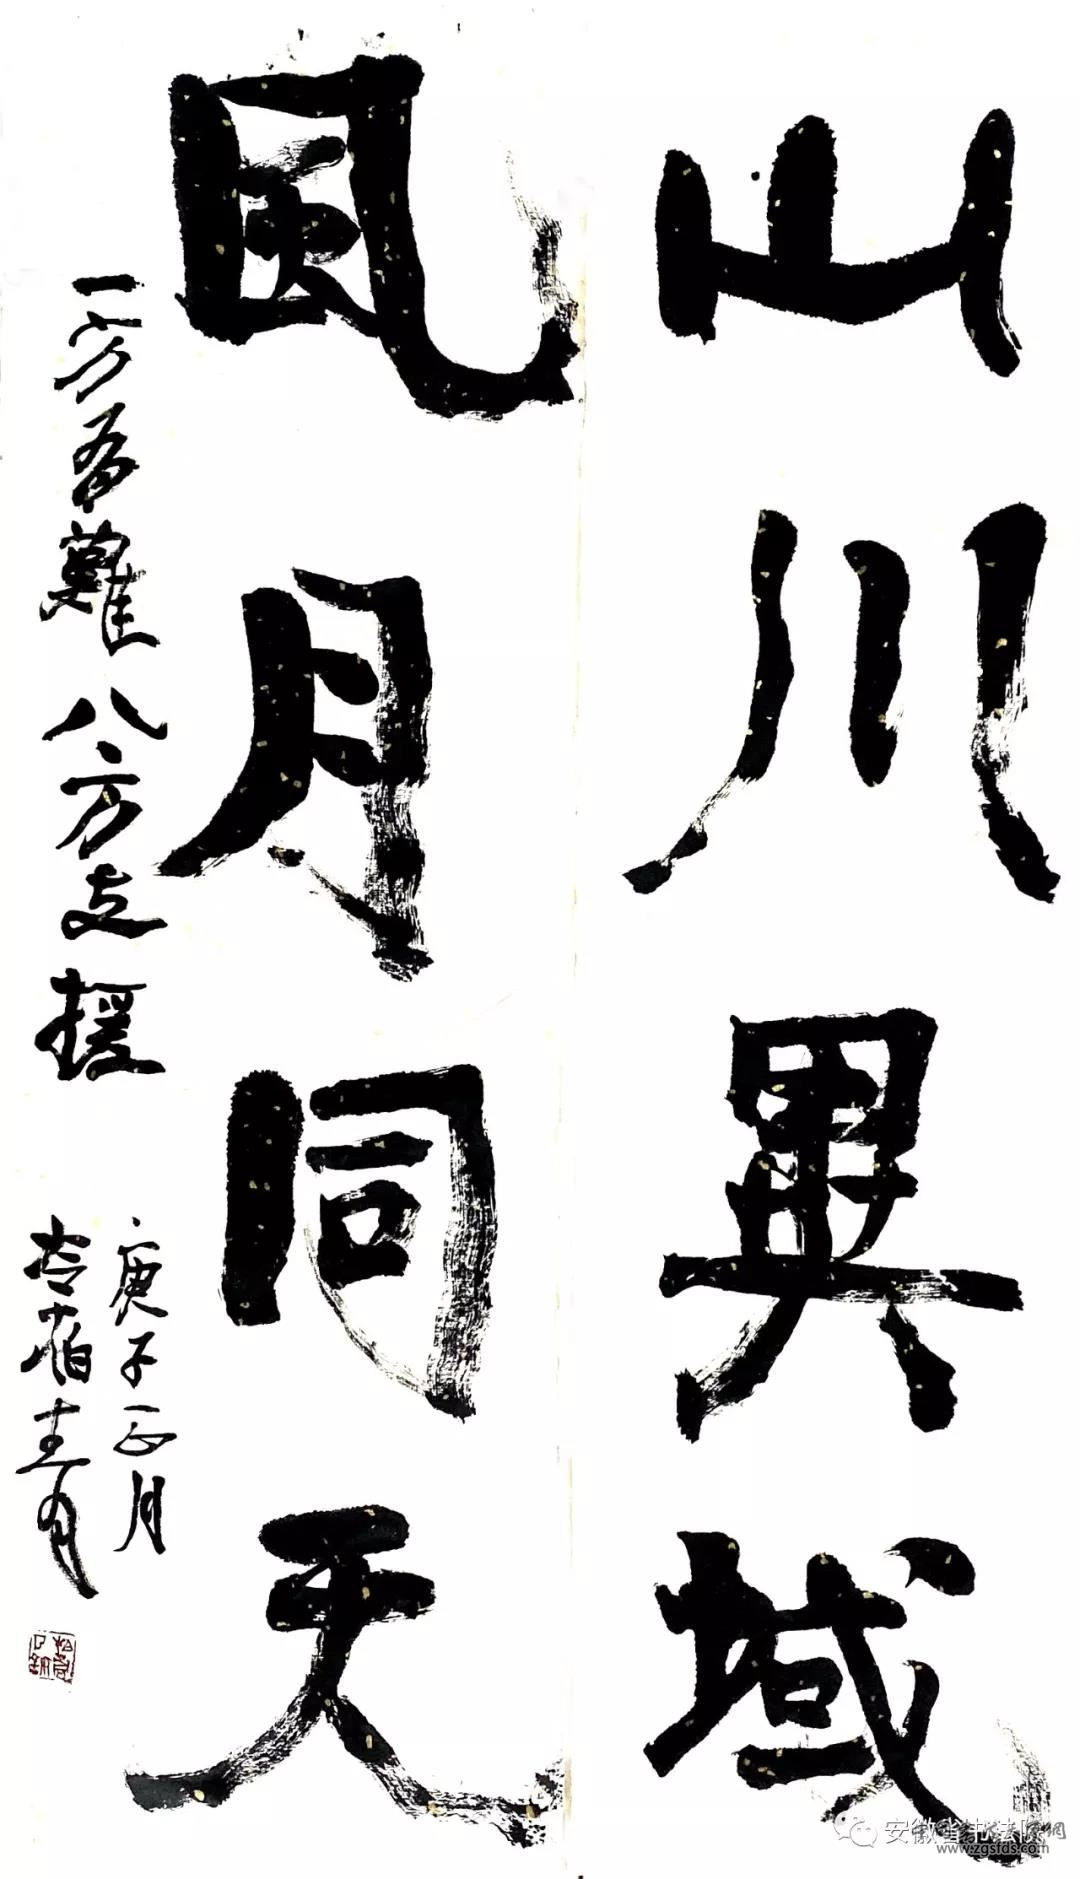 山川異域
風月同天
一方有難八方支援
庚子正月
安徽省书法院
www.zgsfds.com